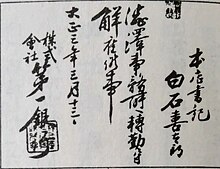 本店書記
白石喜太郎
澁澤事務所轉勤ニ付
解雇候事
大正三年三月十二日
株式會社第一銀行